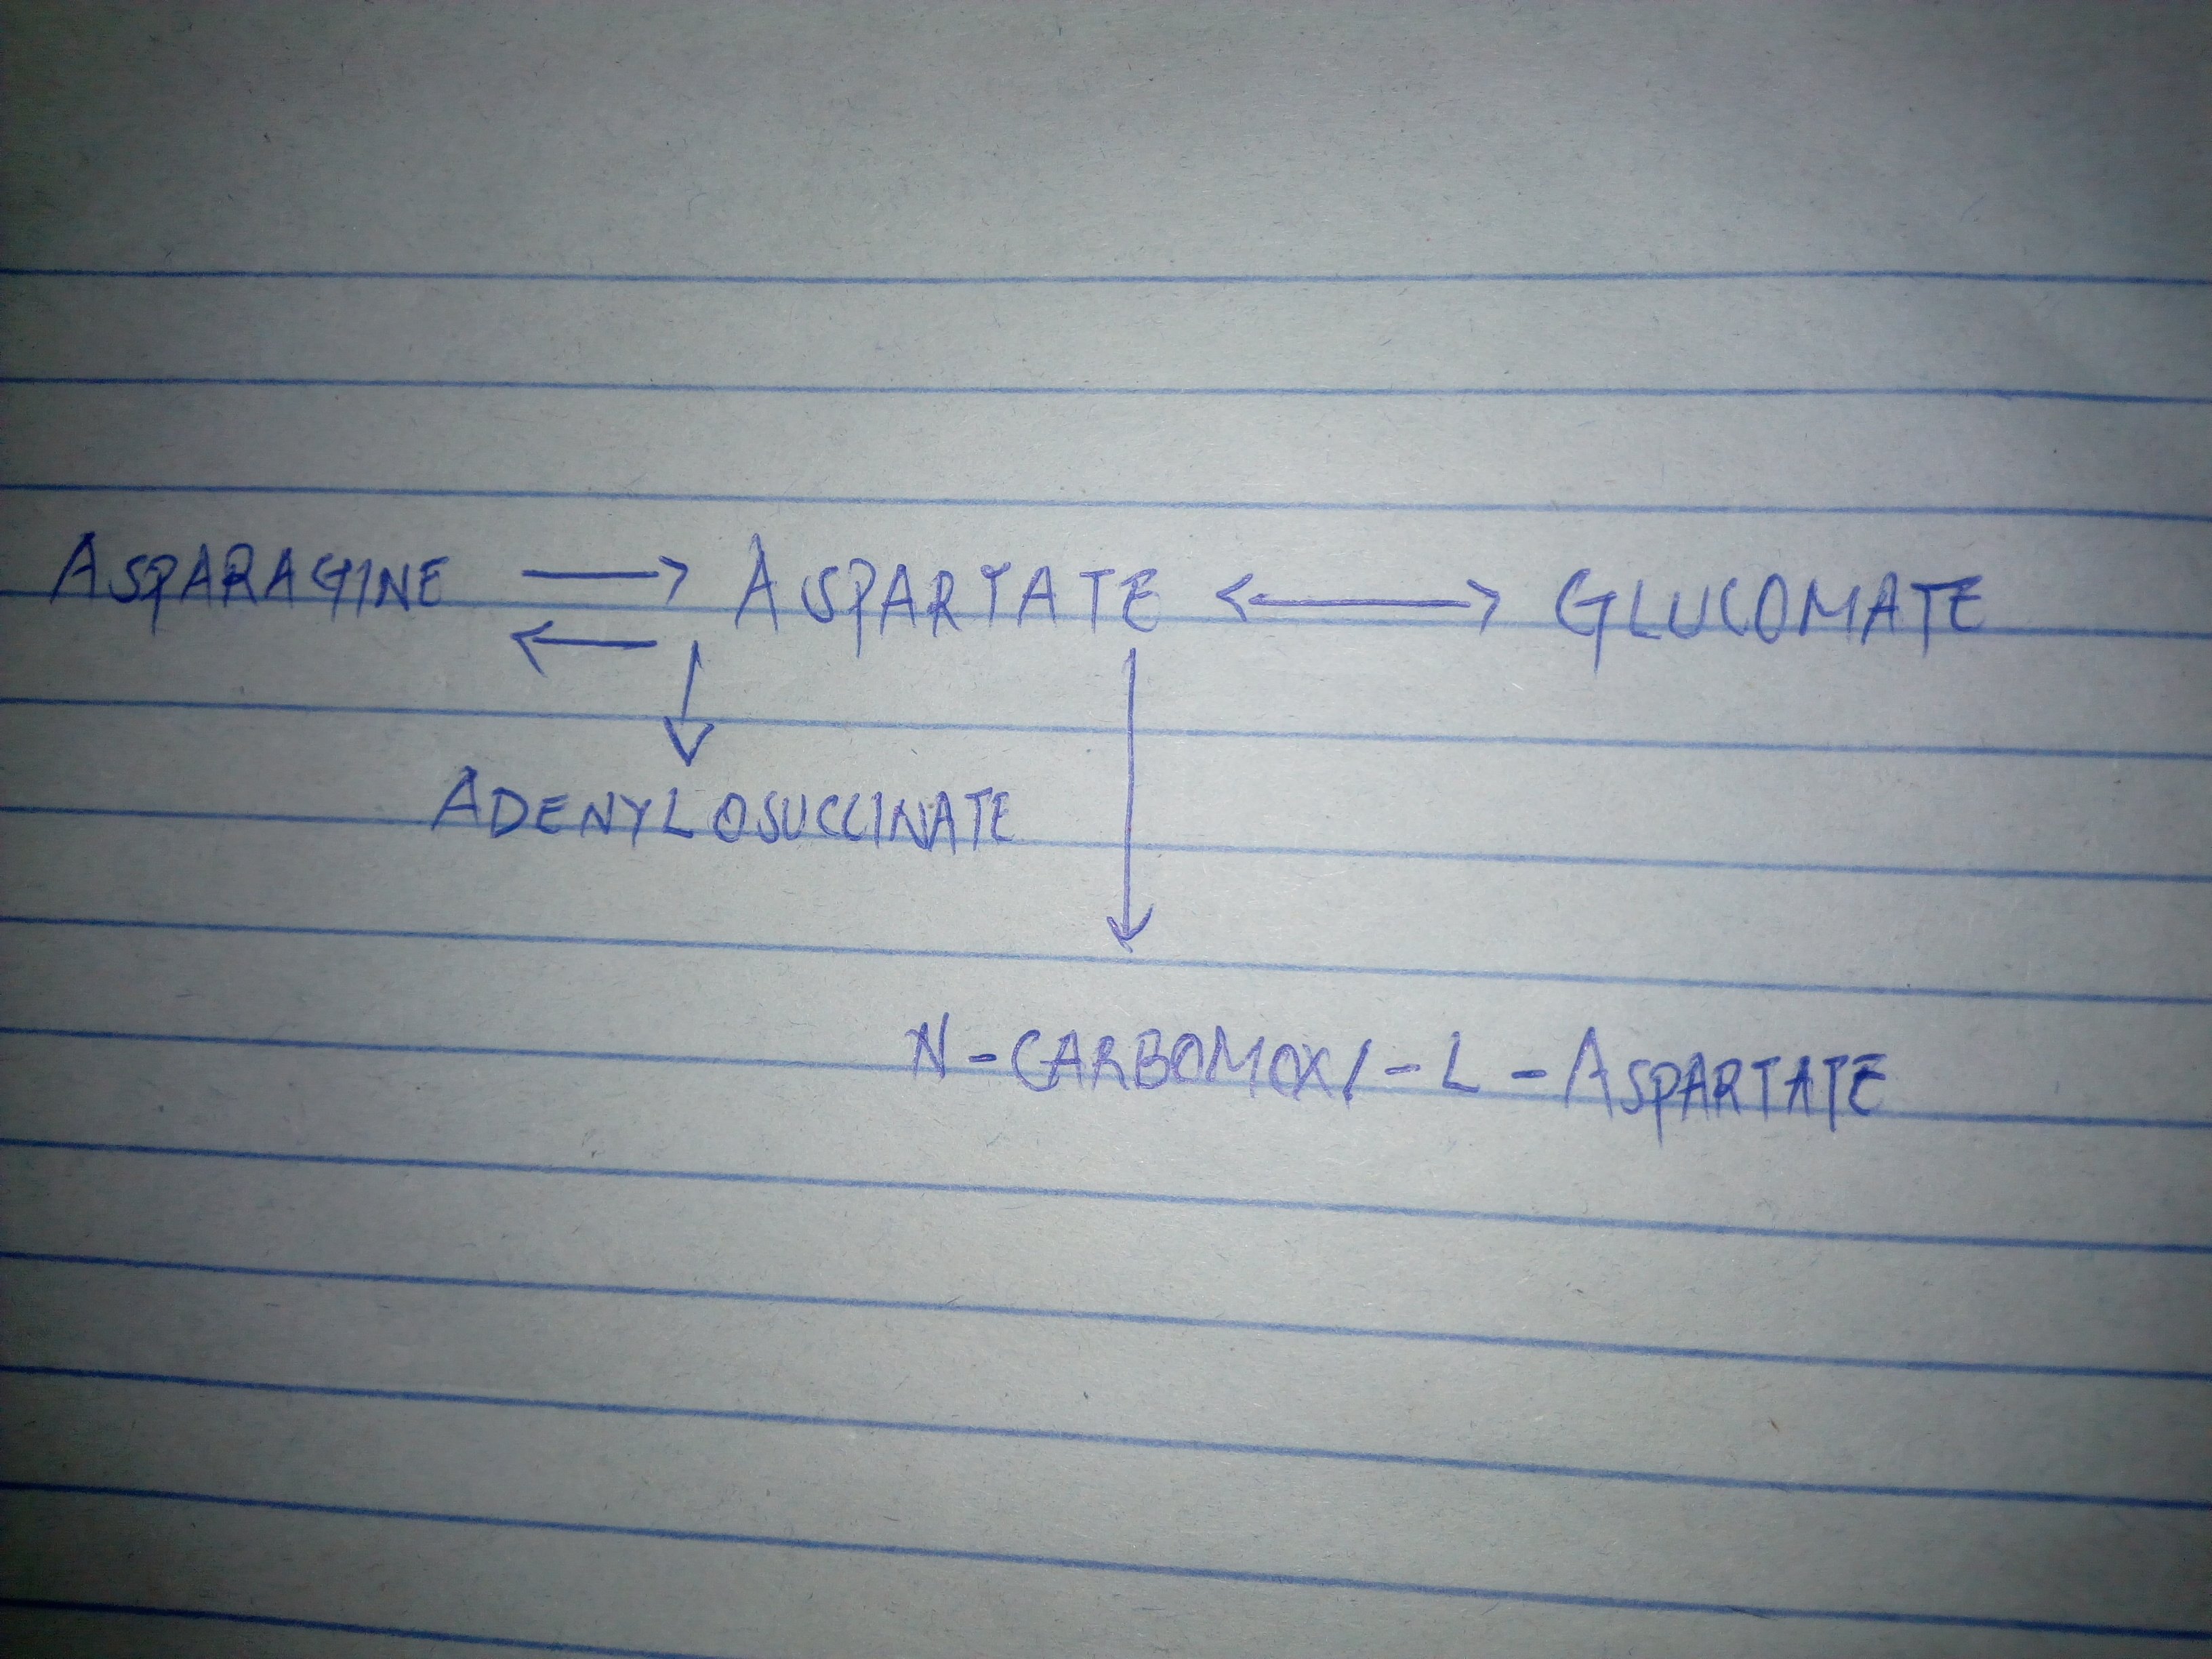 ASPARAGINE ASPARTATE GLUCOMATE
ADENYLOSUCCINATE
N-CARBOMOX/-L-ASPARTATE